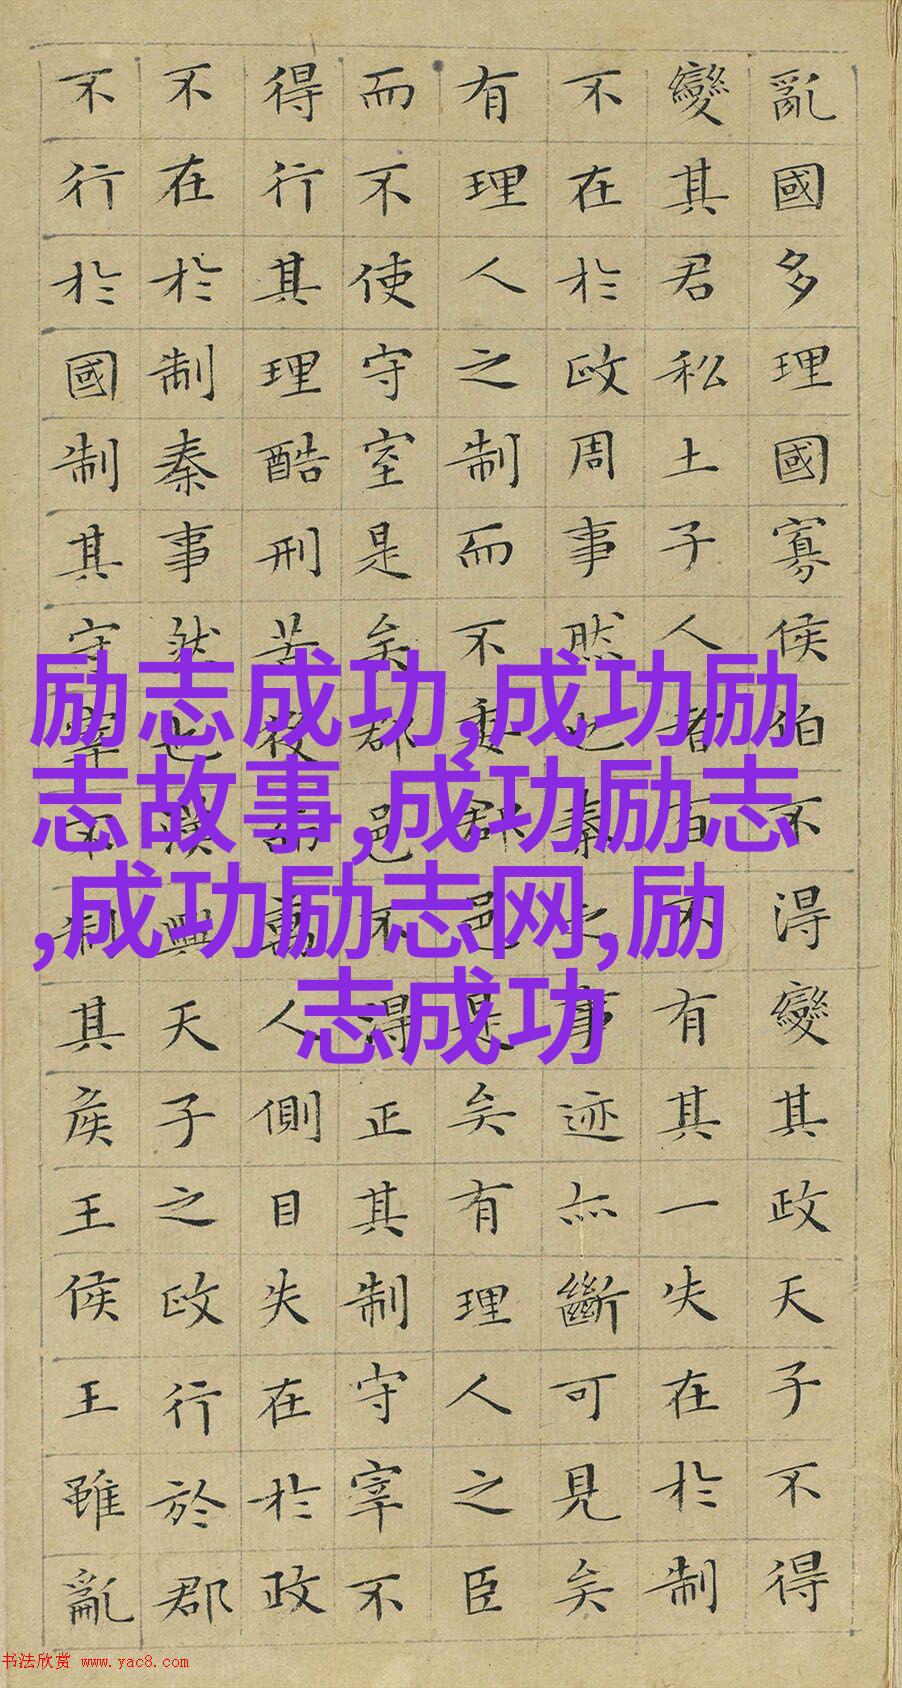 亂國多理國寡侯伯不得變其政天子不得
變其君私土子人者百不有其一失在於制
不在於政周事然也秦之事迹亦斷可見矣
有理人之制而不委郡邑是矣有理人之臣
而不使守宰是矣郡邑不得正其制守宰不
得行其理酷刑苦役而萬人側目失在於政
不在於制秦事然也漢興天子之政行於郡
不行於國制其守宰不制其侯王侯王雖亂
励志成功,成功励
志故事,成功励志
,成功励志网,励
志成功
书法欣赏 www.yac8.com